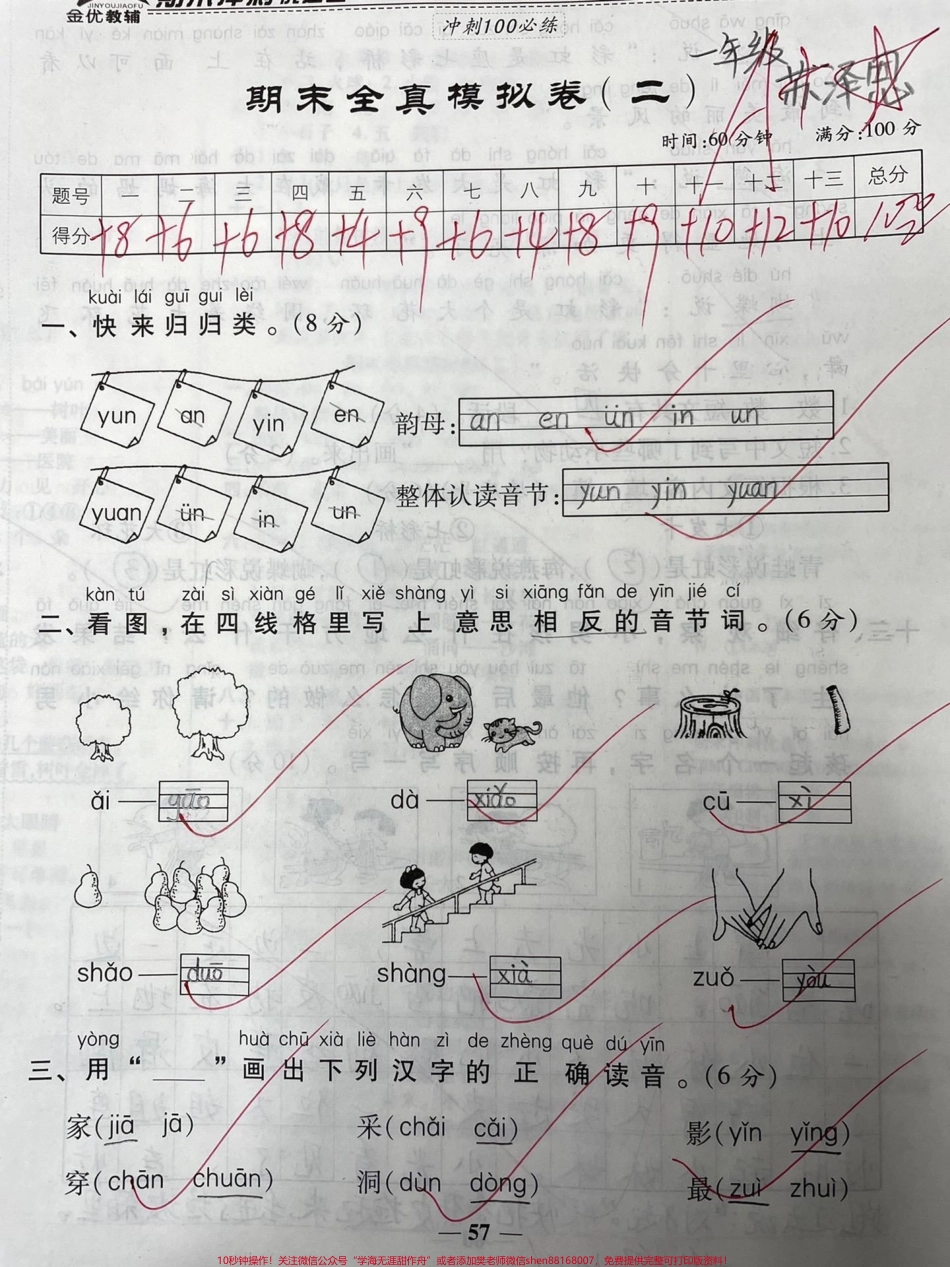 JINYOUJIAOFU
金优教辅
冲刺100必练
一年级
苏泽恩
期末全真模拟卷(二)
时间:60分钟 满分:100分
题号 一 二 三 四 五 六 七 八 九 十 十一 十二 十三 总分
得分 +8 +6 +6 +8 +4 +9 +6 +4 +8 +9 +10 +12 +10 100
kuài lái guī gui lèi
一、快来归归类。(8分)
yun an yin en
韵母: an en ün in un
yuan ün in un
整体认读音节: yun yin yuan
kàn tú zài sì xiàn gé lǐ xiě shàng yì si xiāng fǎn de yīn jié cí
二、看图,在四线格里写上意思相反的音节词。(6分)
ǎi — gāo dà — xiǎo cū — xì
shǎo — duō shàng — xià zuǒ — yòu
yòng huà chū xià liè hàn zì de zhèng què dú yīn
三、用“____”画出下列汉字的正确读音。(6分)
家(jiā jā) 采(chǎi cǎi) 影(yǐn yǐng)
穿(chān chuān) 洞(dùn dòng) 最(zuì zhuì)
— 57 —
10秒钟操作！关注微信公众号“学海无涯甜作舟”或者添加樊老师微信shen88168007，免费提供完整可打印版资料！